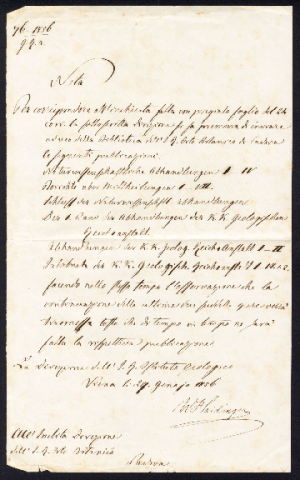 76 1856
Nota
Per corrispondere all'inchiesta fatta con pregiato foglio del 24
corr. la sottoscritta Direzione si fa premura di inviare
ad uso della Biblioteca dell' I. R. Orto Botanico di Padova
le seguenti pubblicazioni
Naturwissenschaftliche Abhandlungen I – IV
Berichte über Mittheilungen I – VII.
der Naturwissenschaft. Abhandlungen
Der 1. Band der Abhandlungen der K. K. Geologischen
Reichsanstalt
Abhandlungen der K. K. Geolog. Reichsanstalt I – II
Jahrbuch der K. K. Geologisch. Reichsanstalt
facendo nello stesso tempo l'osservazione che la
continuazione delle ultime due verrà
trasmessa tosto che di tempo in tempo ne sarà
fatta la rispettiva pubblicazione
La Direzione dell' I. R. Istituto Geologico
Vienna li 29 Gennajo 1856
Haidinger
All' Inclita Direzione
dell' I. R. Orto Botanico
Padova